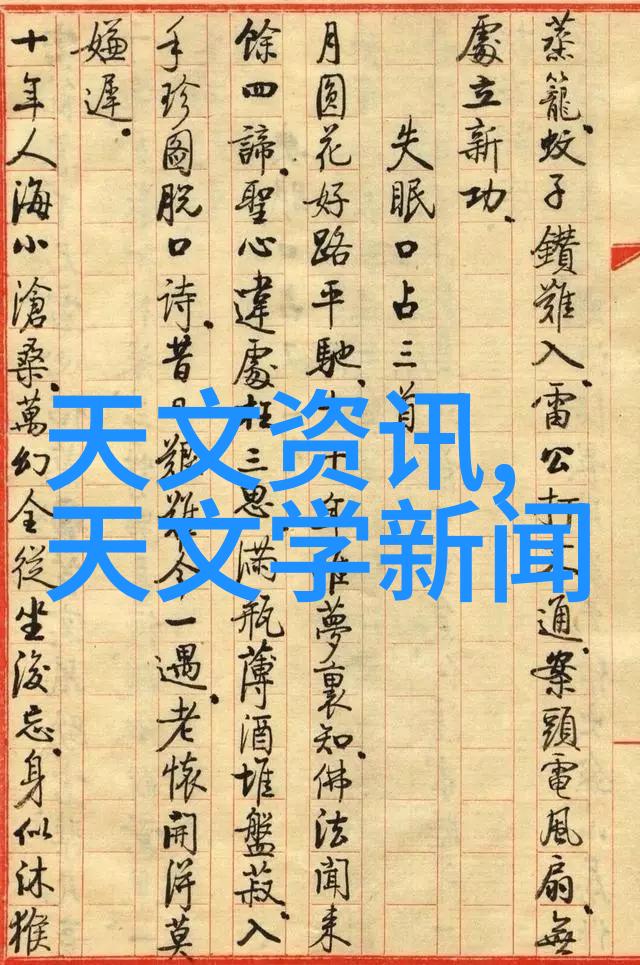 蒸籠蚊子鑽難入雷公打通案頭電風扇無
處立新功
失眠口占三首
月圓花好路平馳十年夢裏知佛法聞来
餘四諦聖心違處在三思滿瓶薄酒堆盤菽入
手珍圖脱口詩昔日艱難今一遇老懷開得莫
嫌遲
十年人海小滄桑萬幻全從坐後忘身似沐猴
天文资讯,
天文学新闻